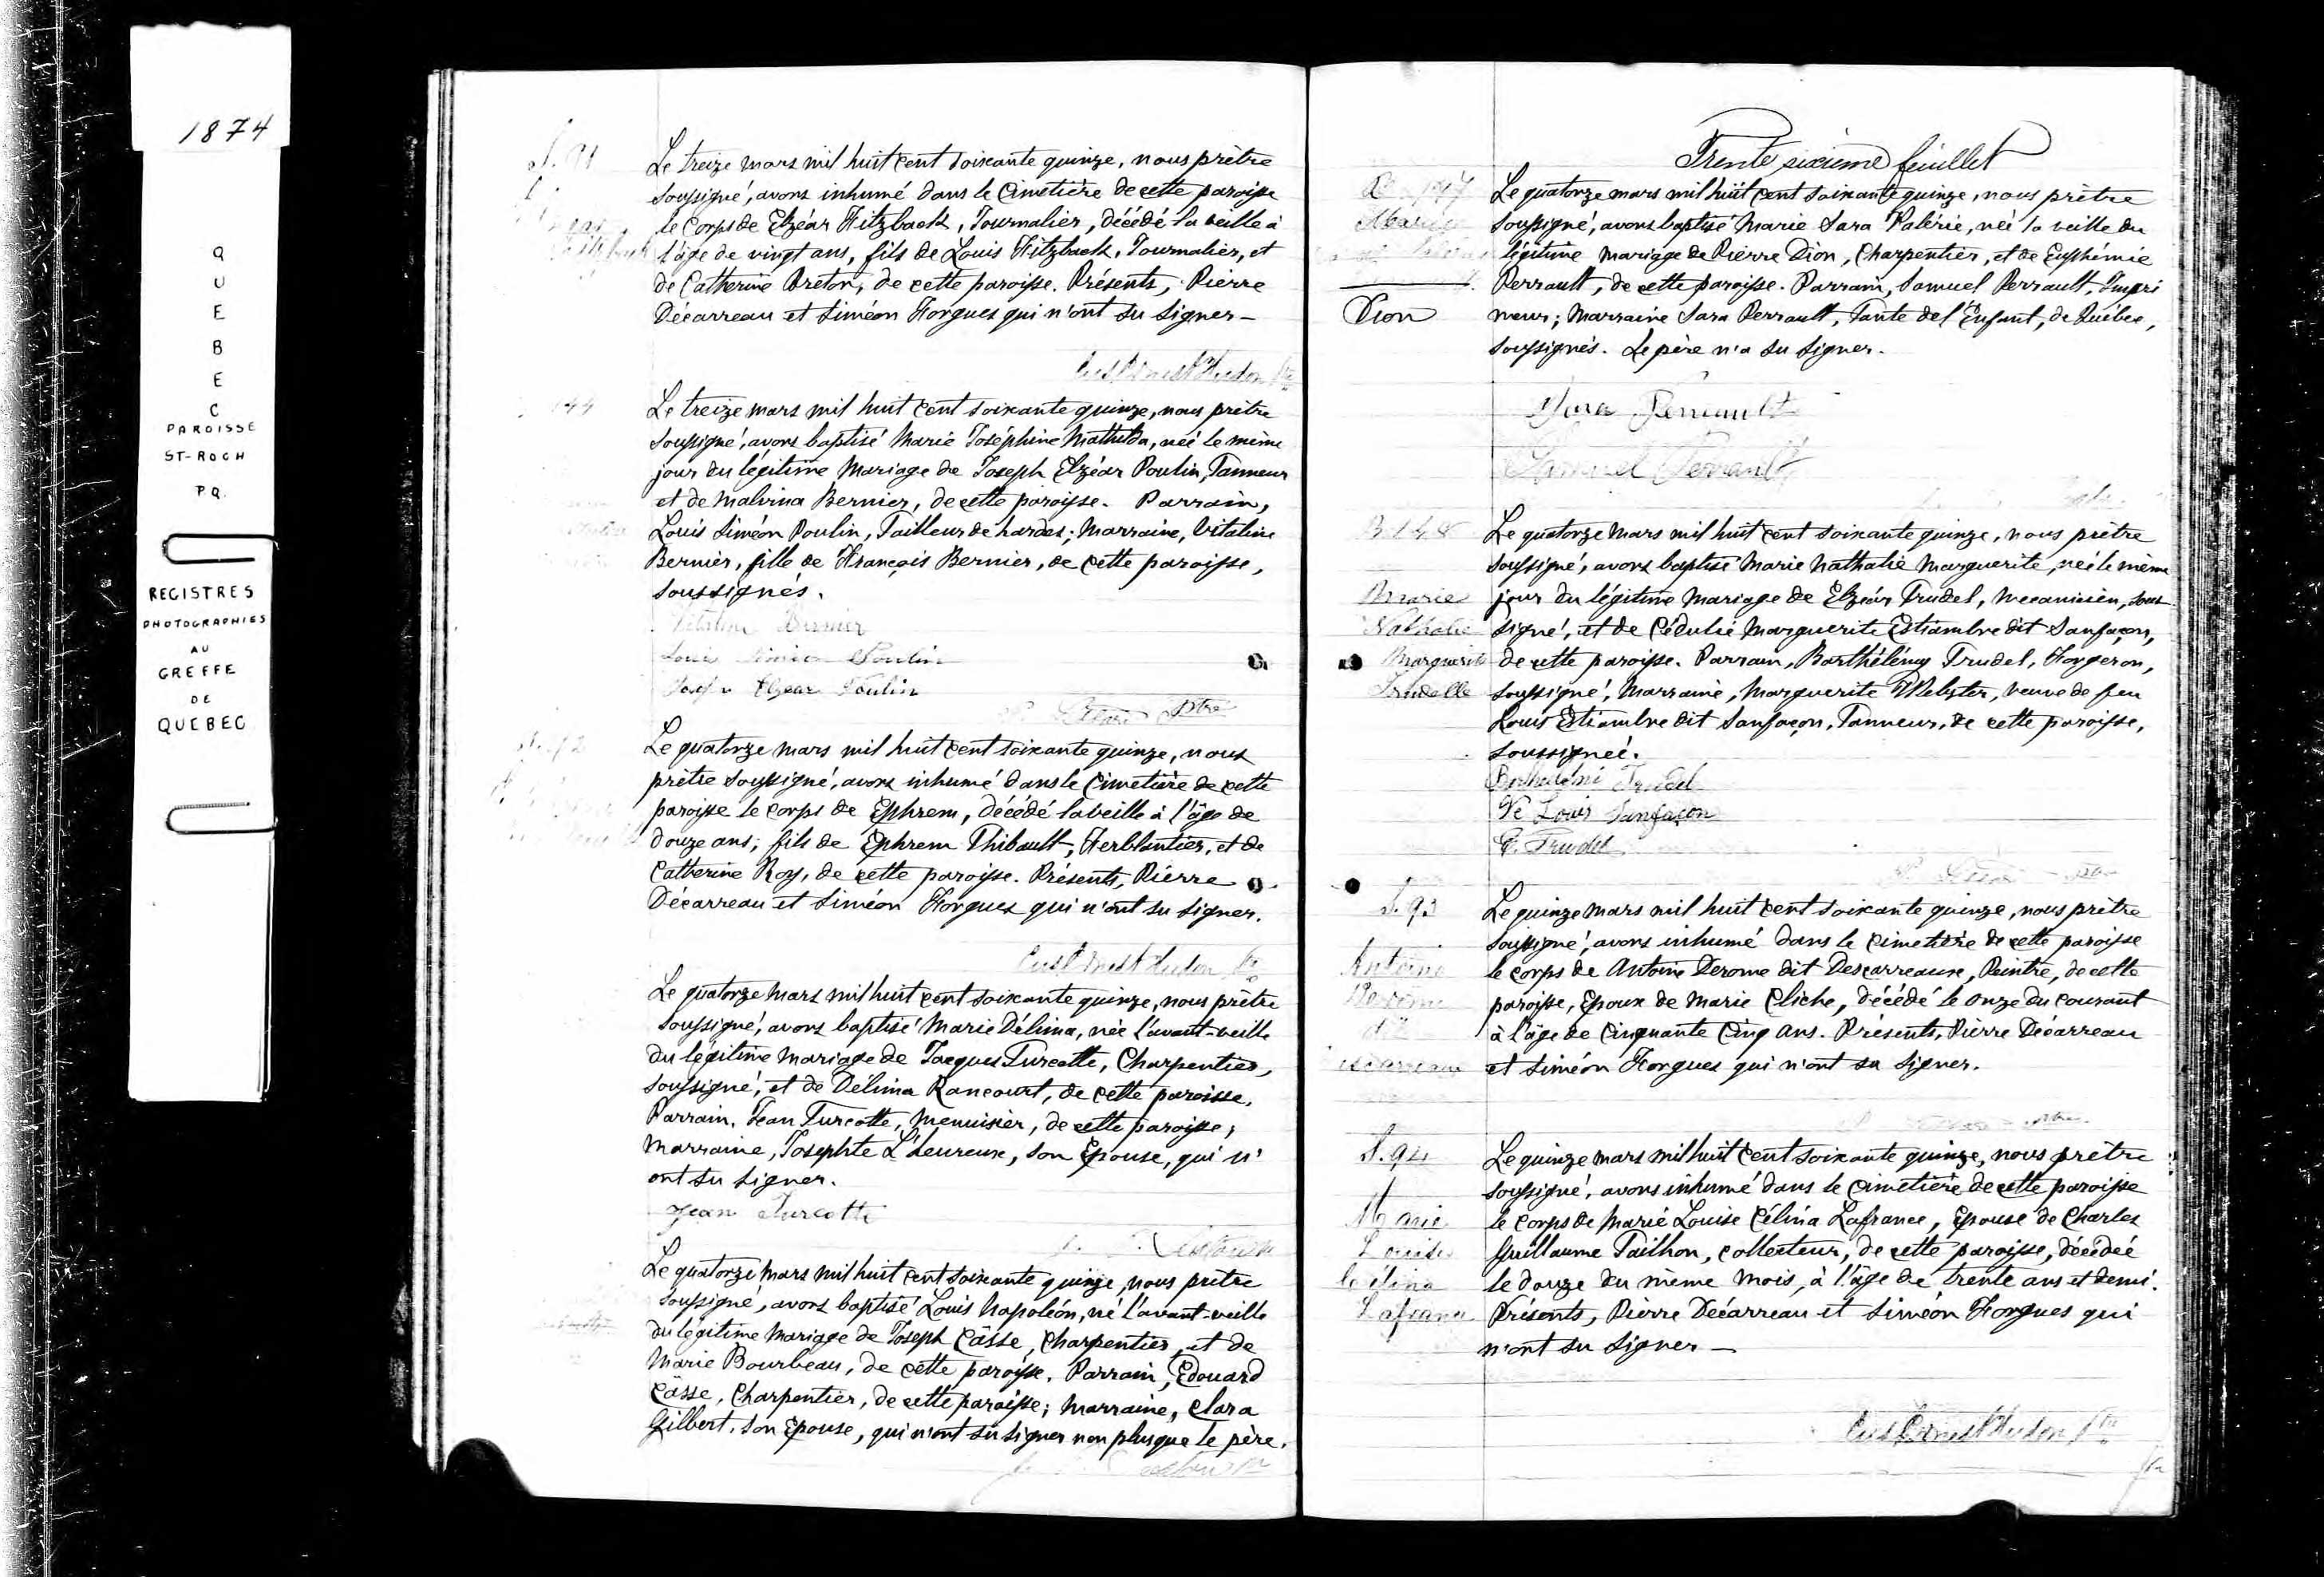 1874
QUEBEC
PAROISSE
ST-ROCH
P.Q.
REGISTRES
PHOTOGRAPHIES
AU
GREFFE
DE
QUEBEC
S. 91
Le treize mars mil huit cent soixante quinze, nous prêtre
soussigné, avons inhumé dans le Cimetière de cette paroisse
le Corps de Elzéar Fitzback, Journalier, décédé la veille à
l'âge de vingt ans, fils de Louis Fitzback, Journalier, et
de Catherine Breton, de cette paroisse. Présents, Pierre
Décarreau et Siméon Forgues qui n'ont su signer —
Hudon Ptre
144
Le treize mars mil huit cent soixante quinze, nous prêtre
soussigné, avons baptisé Marie Joséphine Mathilda, née le même
jour du légitime Mariage de Joseph Elzéar Poulin, Tanneur
et de Malvina Bernier, de cette paroisse. Parrain,
Louis Siméon Poulin, Tailleur de hardes; Marraine, Vitaline
Bernier, fille de François Bernier, de cette paroisse,
soussignés.
Vitaline Bernier
Louis Siméon Poulin
Joseph Elzear Poulin
Ptre
Le quatorze mars mil huit cent soixante quinze, nous
prêtre soussigné, avons inhumé dans le Cimetière de cette
paroisse le corps de Ephrem, décédé la veille à l'âge de
douze ans, fils de Ephrem Thibault, Ferblantier, et de
Catherine Roy, de cette paroisse. Présents, Pierre
Décarreau et Siméon Forgues qui n'ont su signer.
Hudon Ptre
Le quatorze mars mil huit cent soixante quinze, nous prêtre
soussigné, avons baptisé Marie Délima, née l'avant-veille
du légitime Mariage de Jacques Turcotte, Charpentier,
soussigné, et de Délima Rancourt, de cette paroisse.
Parrain, Jean Turcotte, Menuisier, de cette paroisse,
Marraine, Josephte L'heureux, son Epouse, qui n'
ont su signer.
Jean Turcotte
Le quatorze mars mil huit cent soixante quinze, nous prêtre
soussigné, avons baptisé Louis Napoléon, né l'avant-veille
du légitime Mariage de Joseph Câsse, Charpentier, et de
Marie Bourbeau, de cette paroisse. Parrain, Edouard
Câsse, Charpentier, de cette paroisse; Marraine, Clara
Gilbert, son Epouse, qui n'ont su signer non plus que le père.
Trente sixième feuillet
Marie
Dion
Le quatorze mars mil huit cent soixante quinze, nous prêtre
soussigné, avons baptisé Marie Sara Valérie, née la veille du
légitime Mariage de Pierre Dion, Charpentier, et de Euphémie
Perrault, de cette paroisse. Parrain, Samuel Perrault, Impri
meur; Marraine Sara Perrault, Tante de l'Enfant, de Québec,
soussignés. Le père n'a su signer.
Sara Perrault
Samuel Perrault
B 148
Marie
Nathalie
Marguerite
Trudelle
Le quatorze mars mil huit cent soixante quinze, nous prêtre
soussigné, avons baptisé Marie Nathalie Marguerite, née le même
jour du légitime Mariage de Elzéar Trudel, Mecanicien, sous
signé, et de Cédulie Marguerite Estiambre dit Sanfaçon,
de cette paroisse. Parrain, Barthélémy Trudel, Forgeron,
soussigné, Marraine, Marguerite Webster, veuve de feu
Louis Estiambre dit Sanfaçon, Tanneur, de cette paroisse,
soussignée.
Barthelemi Trudel
Ve Louis Sanfaçon
E. Trudel
S. 93
Antoine
Derome
dit
Le quinze mars mil huit cent soixante quinze, nous prêtre
soussigné, avons inhumé dans le Cimetière de cette paroisse
le corps de Antoine Derome dit Descarreaux, Peintre, de cette
paroisse, Epoux de Marie Cliche, décédé le onze du courant
à l'âge de Cinquante Cinq ans. Présents, Pierre Décarreau
et Siméon Forgues qui n'ont su signer.
S. 94
Marie
Louise
Célina
Lafrance
Le quinze mars mil huit cent soixante quinze, nous prêtre
soussigné, avons inhumé dans le Cimetière de cette paroisse
le Corps de Marie Louise Célina Lafrance, Epouse de Charles
Guillaume Taillon, Collecteur, de cette paroisse, décédée
le douze du même mois, à l'âge de trente ans et demi.
Présents, Pierre Décarreau et Siméon Forgues qui
n'ont su signer —
Hudon Ptre